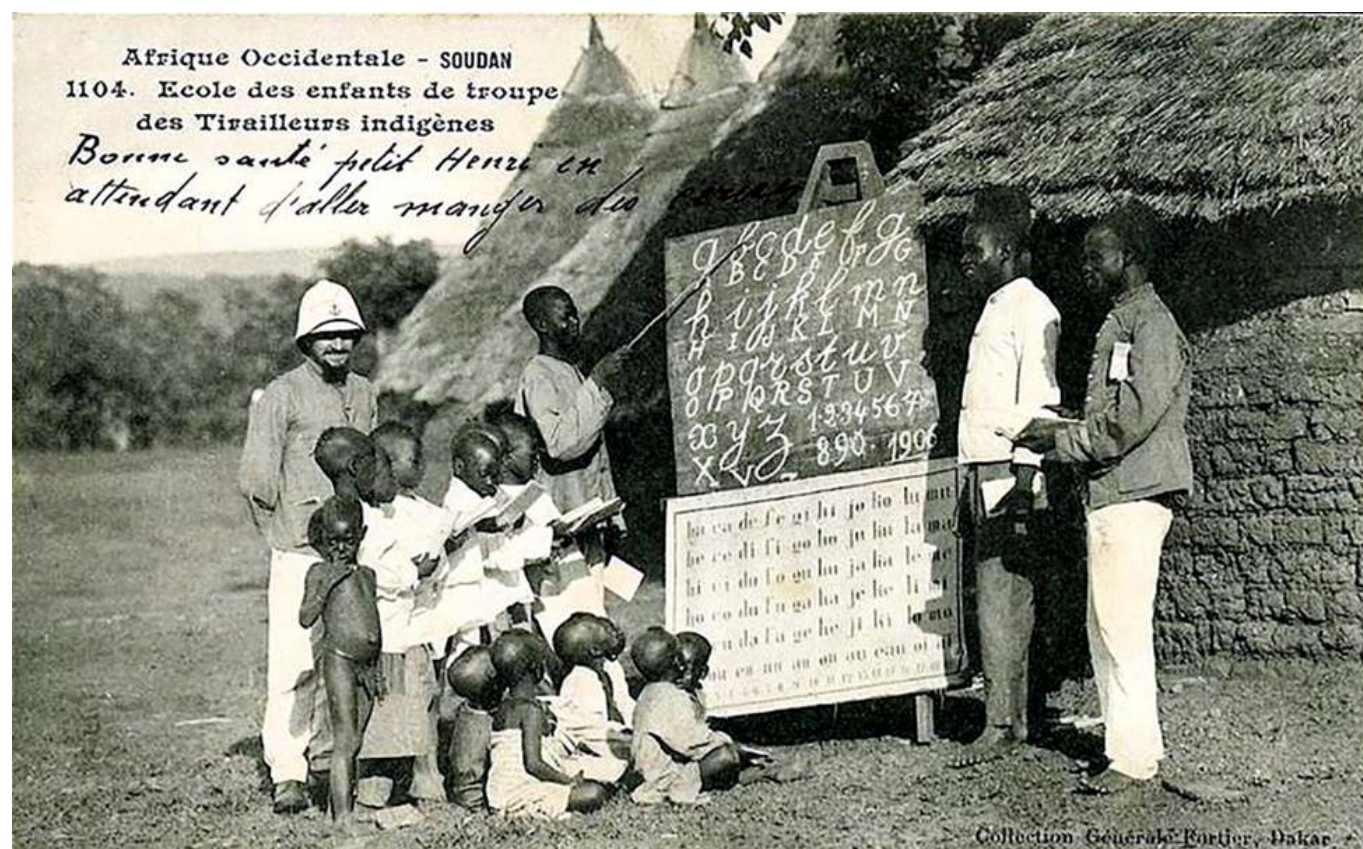 Afrique Occidentale - SOUDAN
1104. Ecole des enfants de troupe
des Tirailleurs indigènes
Bonne santé petit Henri en
attendant d'aller manger des
a b c d e f g
B C D E F G
h i j k l m n
H I J K L M N
o p q r s t u v
O P Q R S T U V
x y z 1234567
X Y Z 890. 1906
ba ca de fe gi hi jo ko lu mu
be ce di fi go ho ju ku la ma
bi ci do fo gu hu ja ka le me
bo co du fu ga ha je ke li mi
da fa ge he ji ki lo mo
en un au on au eau oi
Collection Générale Fortier, Dakar